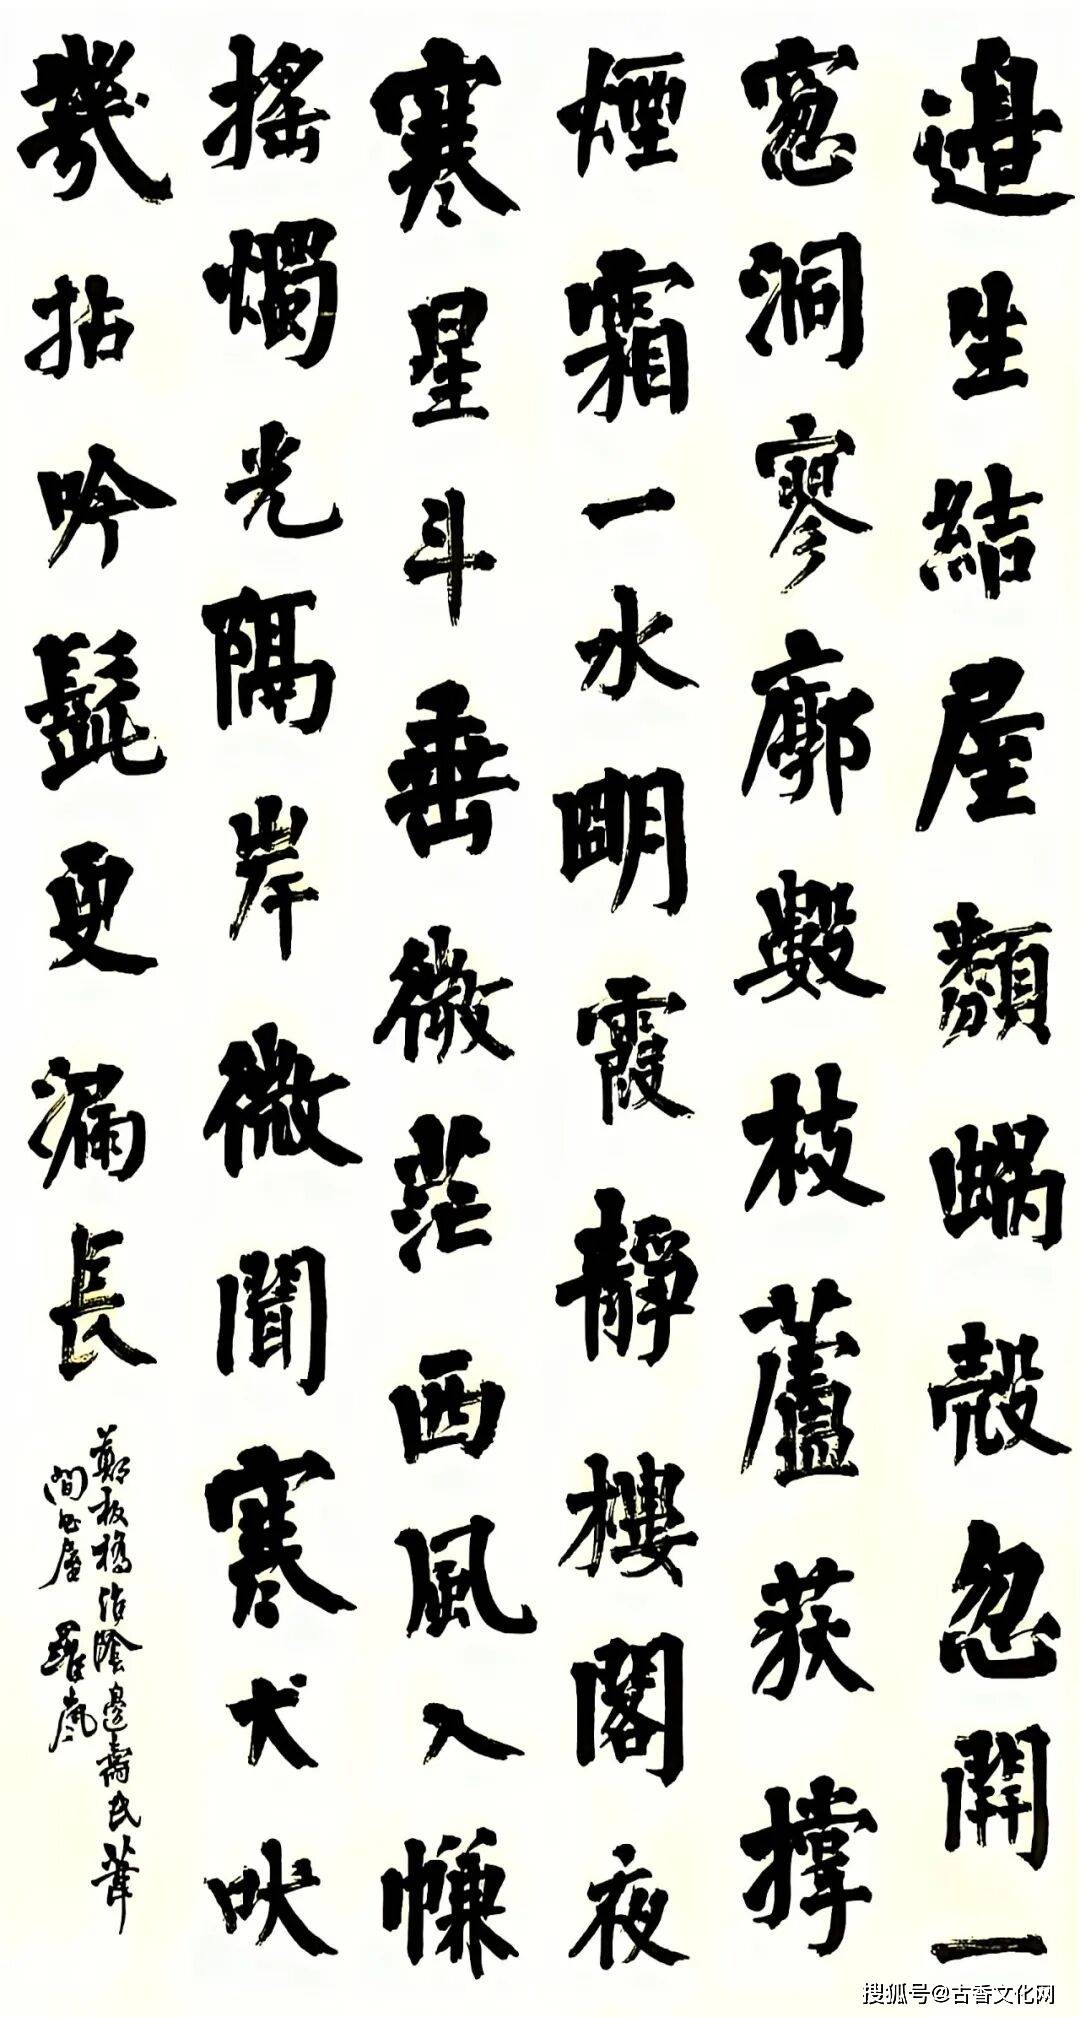 邉生結屋類蝸殼忽開一
窓洞寥廓數枝蘆荻撐
煙霜一水明霞靜樓閣夜
寒星斗垂微茫西風入幙
搖燭光隔岸微聞寒犬吠
幾拈吟髭更漏長
鄭板橋詩陰邊壽民葦
間書屋 羅嵐
搜狐号@古香文化网